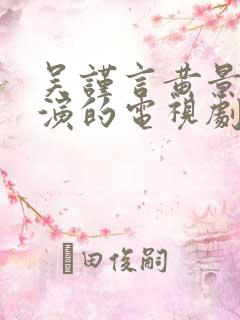 吴謹言黄景
演的電視劇
田俊嗣